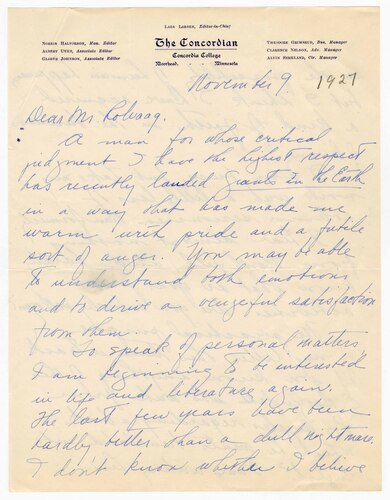 Lars Larsen, Editor-in-Chief
Norris Halvorson, Man. Editor
Albert Uthe, Associate Editor
Gladys Johnson, Associate Editor
The Concordian
Concordia College
Moorhead, Minnesota
Theodore Grimsrud, Bus. Manager
Clarence Nelson, Adv. Manager
Alvin Storland, Cir. Manager
November 9. 1927
Dear Mr. Rolvaag.
A man for whose critical
judgment I have the highest respect
has recently lauded Giants in the Earth
in a way that has made me
warm with pride and a futile
sort of anger. You may be able
to understand both emotions
and to derive a vengeful satisfaction
from them.
To speak of personal matters
I am beginning to be interested
in life and literature again.
The last few years have been
hardly better than a dull nightmare.
I don't know whether I believe